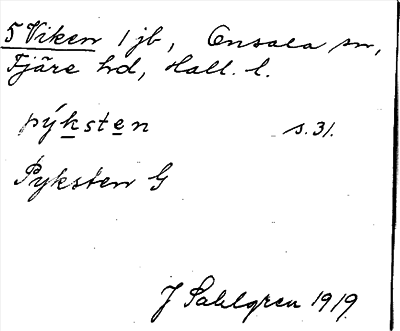 5 Viken 1 jb, Onsala sn,
Fjäre hd, Hall. l.
pýksten s. 31.
Pyksten G
J Sahlgren 1919